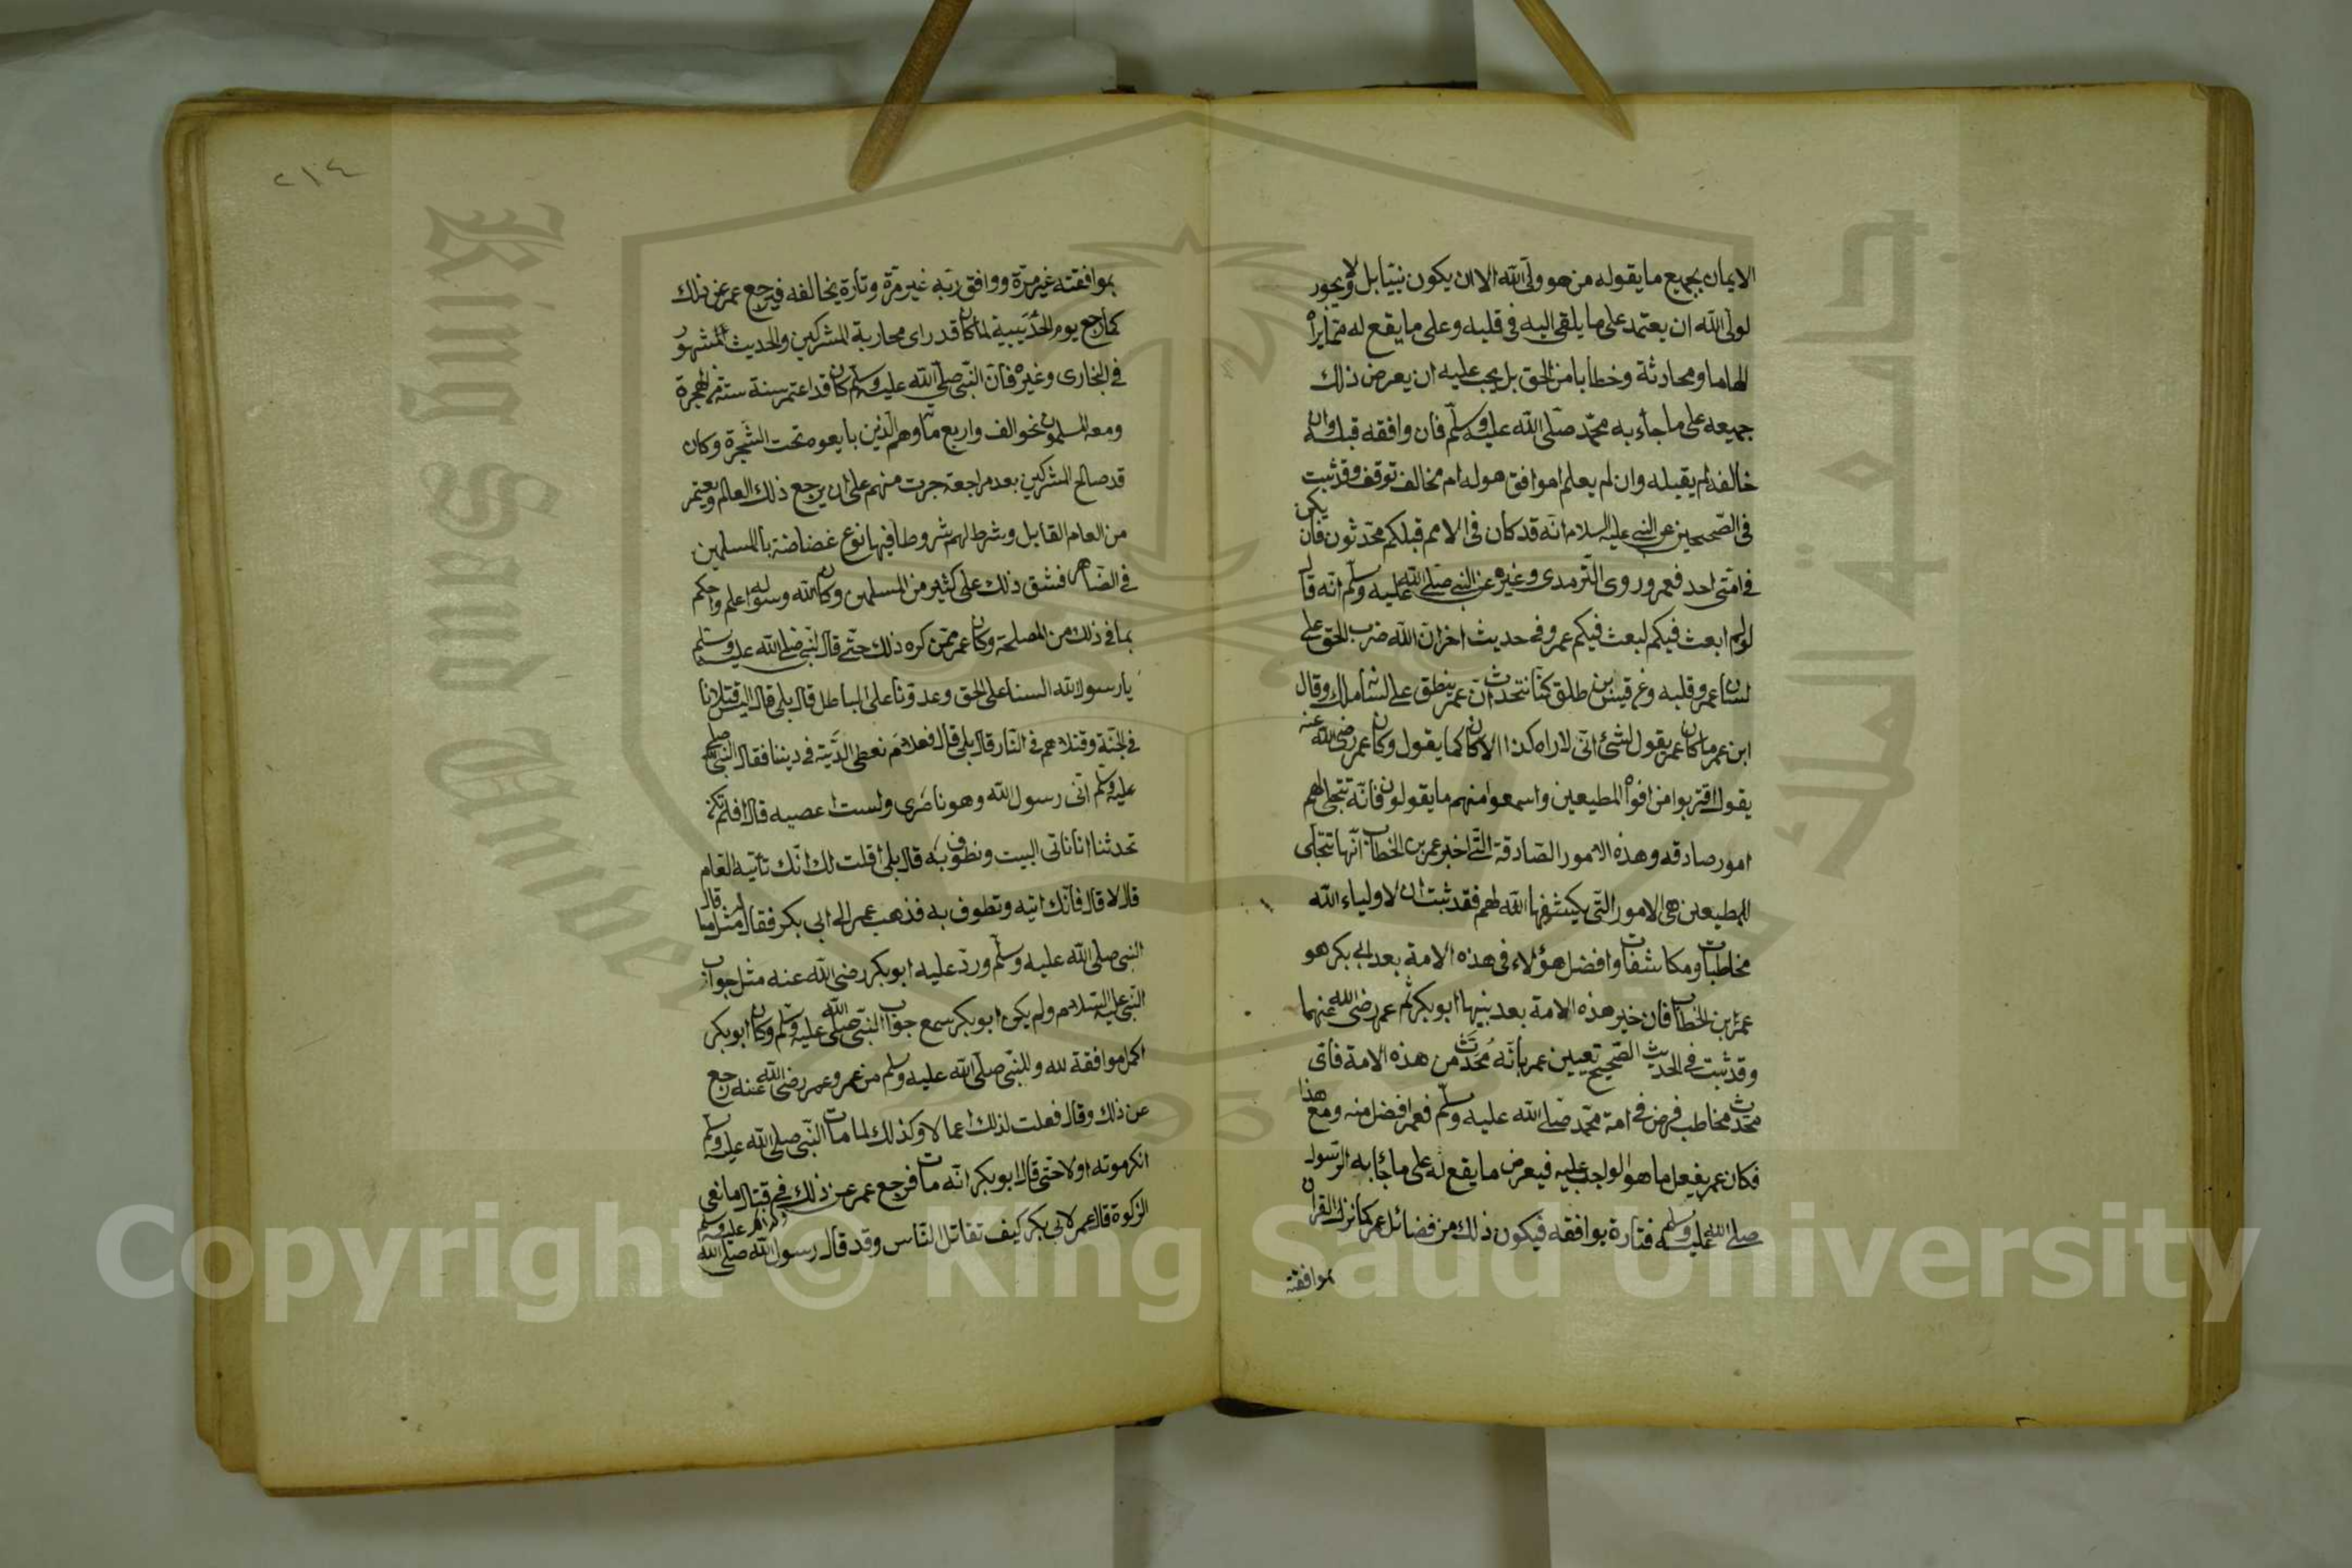 الايمان بجميع ما يقوله من هو ولى الله الا ان يكون نبيا بل ولا يجوز
لولى الله ان يعتمد على ما يلقى اليه فى قلبه وعلى ما يقع له مما يراه
الهاما ومحادثة وخطابا من الحق بل يجب عليه ان يعرض ذلك
جميعه على ما جاء به محمد صلى الله عليه وسلم فان وافقه قبله وان
خالفه لم يقبله وان لم يعلم اموافق هو له ام مخالف توقف وقد ثبت
فى الصحيحين عن النبى عليه السلام انه قد كان فى الامم قبلكم محدثون فان يكن
فى امتى احد فعمر وروى الترمدى وغيره عن النبى صلى الله عليه وسلم انه قال
لو لم ابعث فيكم لبعث فيكم عمر وفى حديث اخر ان الله ضرب الحق على
لسان عمر وقلبه وعن قيس بن طلق كنا نتحدث ان عمر ينطق على لسانه ملك وقال
ابن عمر ما كان عمر يقول لشئ انى لاراه كذا الا كان كما يقول وكان عمر رضى الله عنه
يقول اقتربوا من افواه المطيعين واسمعوا منهم ما يقولون فانه تتجلى لهم
امور صادقه وهذه الامور الصادقة التى اخبر عمر بن الخطاب انها تتجلى
للمطيعين هى الامور التى يكشفها الله لهم فقد ثبت ان لاولياء الله
مخاطبات ومكاشفات وافضل هؤلاء فى هذه الامة بعد ابى بكر هو
عمر بن الخطاب فان خير هذه الامة بعد نبيها ابو بكر ثم عمر رضى الله عنهما
وقد ثبت فى الحديث الصحيح تعيين عمر بانه مُحَدَّث من هذه الامة فاى
محدث مخاطب فرض فى امة محمد صلى الله عليه وسلم فعمر افضل منه ومع هذا
فكان عمر يفعل ما هو الواجب عليه فيعرض ما يقع له على ما جاء به الرسول
صلى الله عليه وسلم فتارة يوافقه فيكون ذلك من فضائل عمر كما نزل القران
بموافقته
٢١٤
بموافقته غير مرة ووافق ربه غير مرة وتارة يخالفه فيرجع عمر عن ذلك
كما رجع يوم الحُدَيبية لما كان قد راى محاربة المشركين والحديث المشهور
فى البخارى وغيره فان النبى صلى الله عليه وسلم كان قد اعتمر سنة ست من الهجرة
ومعه المسلمون نحو الف واربع مائة وهم الذين بايعوه تحت الشجرة وكان
قد صالح المشركين بعد مراجعة جرت منهم على ان يرجع ذلك العام ويعتمر
من العام القابل وشرط لهم شروطا فيها نوع غضاضة بالمسلمين
فى الضاهر فشق ذلك على كثير من المسلمين وكان الله ورسوله اعلم واحكم
بما فى ذلك من المصلحة وكان عمر ممن كره ذلك حتى قال للنبى صلى الله عليه وسلم
يا رسول الله السنا على الحق وعدونا على الباطل قال بلى قال اليس قتلانا
فى الجنة وقتلاهم فى النار قال بلى قال فعلام نعطى الدنية فى ديننا فقال النبى صلى الله
عليه وسلم انى رسول الله وهو ناصرى ولست اعصيه قال افلم تكن
تحدثنا انا ناتى البيت ونطوف به قال بلى اقلت لك انك تأتيه العام
قال لا قال فانك اتيه وتطوف به فذهب عمر الى ابى بكر فقال له مثل ما قال
النبى صلى الله عليه وسلم ورد عليه ابو بكر رضى الله عنه مثل جواب
النبى عليه السلام ولم يكن ابو بكر سمع جواب النبى صلى الله عليه وسلم وكان ابو بكر
اكمل موافقة لله وللنبى صلى الله عليه وسلم من عمر وعمر رضى الله عنه رجع
عن ذلك وقال فعلت لذلك اعمالا وكذلك لما مات النبى صلى الله عليه وسلم
انكر موته اولا حتى قال ابو بكر انه مات فرجع عمر عن ذلك فى قتال مانعى
الزكوة قال عمر لابى بكر كيف تقاتل الناس وقد قال رسول الله صلى الله عليه وسلم
Copyright © King Saud University
جامعة الملك
King Saud Univer
1957